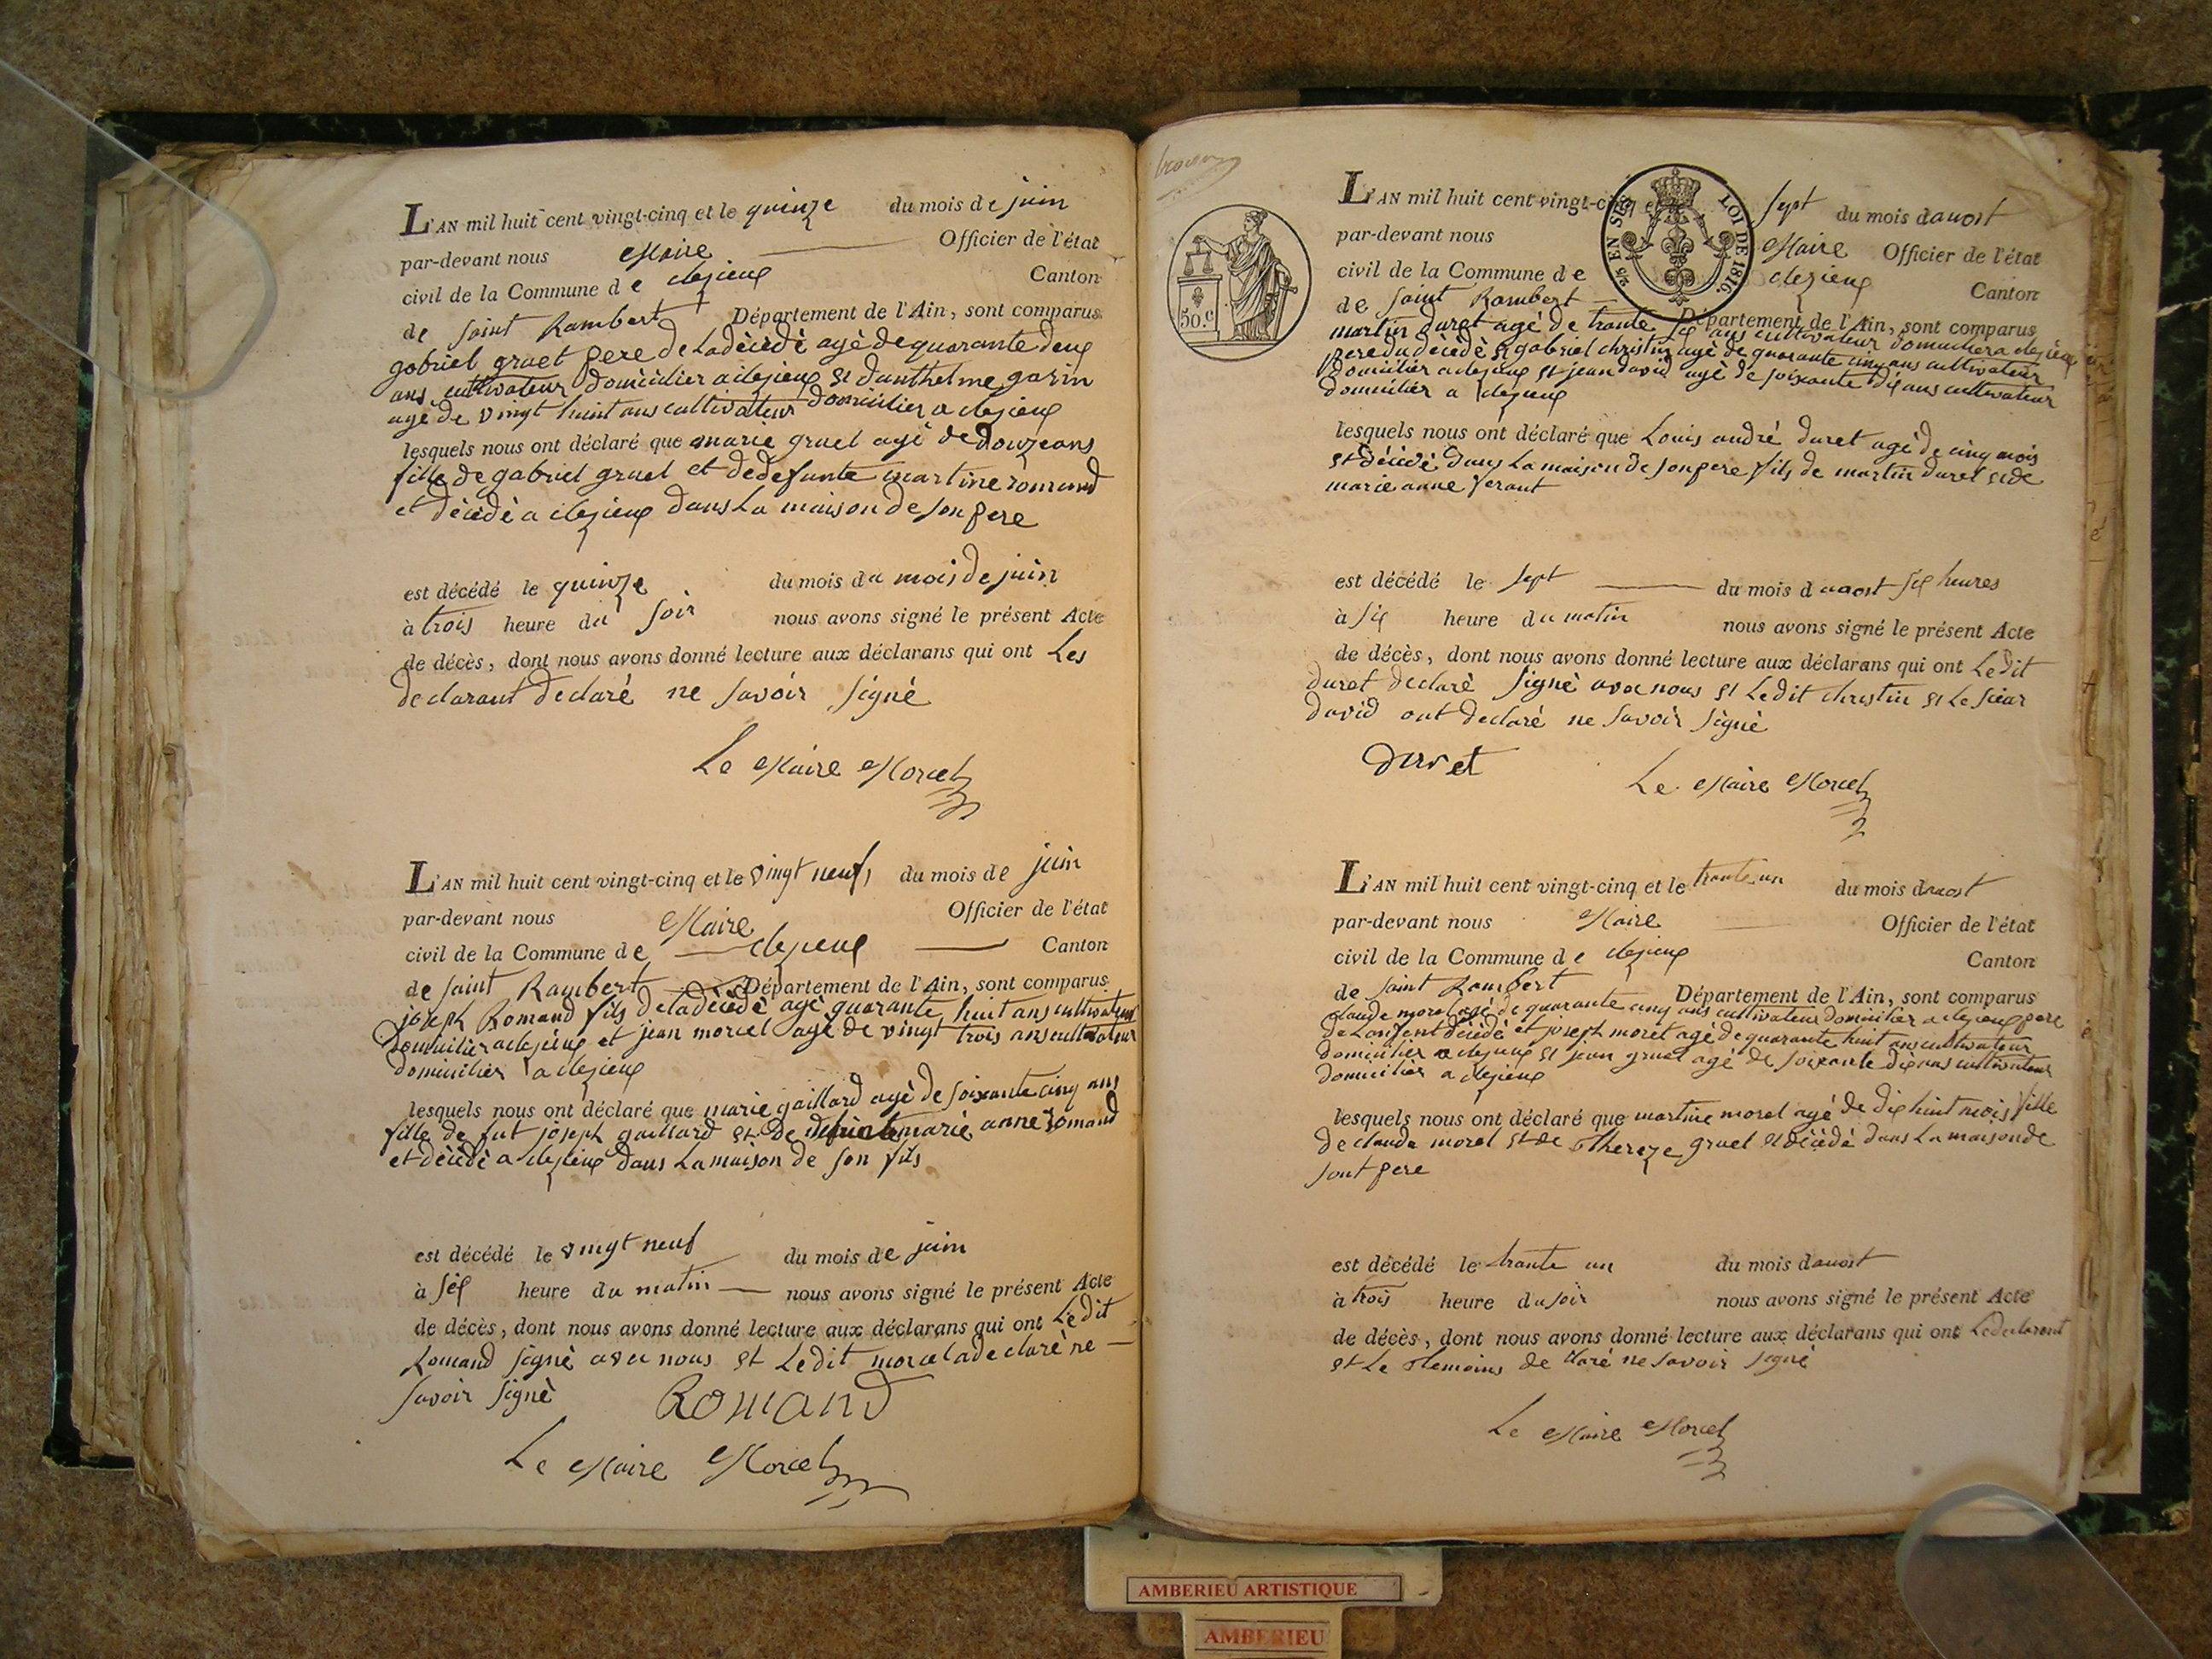 L'AN mil huit cent vingt-cinq et le quinze du mois de juin
par-devant nous Maire Officier de l'état
civil de la Commune de clezieux Canton
de Saint Rambert Département de l'Ain, sont comparus
gabriel gruet pere de la dècèdè agè de quarante deux
ans cultivateur domicilier a clezieux et danthelme garin
agé de vingt huit ans cultivateur domicilier a clezieux
lesquels nous ont déclaré que marie gruel agé de douze ans
fille de gabriel gruel et de defunte martine romand
et dècèdè a clezieux dans La maison de son pere
est décédé le quinze du mois du mois de juin
à trois heure du soir nous avons signé le présent Acte
de décès, dont nous avons donné lecture aux déclarans qui ont Les
declarant declaré ne savoir signè
Le Maire Morcel
L'AN mil huit cent vingt-cinq et le vingt neuf du mois de juin
par-devant nous Maire Officier de l'état
civil de la Commune de clezieux Canton
de saint Rambert Département de l'Ain, sont comparus
joseph Romand fils de la dècèdè agè quarante huit ans cultivateur
domicilier a clezieux et jean morcel agé de vingt trois ans cultivateur
domicilier a clezieux
lesquels nous ont déclaré que marie gaillard agè de soixante cinq ans
fille de fut joseph gaillard et de defunte marie anne romand
et dècèdè a clezieux dans La maison de son fils
est décédé le vingt neuf du mois de juin
à six heure du matin nous avons signé le présent Acte
de décès, dont nous avons donné lecture aux déclarans qui ont Ledit
Romand signè avec nous et Ledit morcel a declarè ne
savoir signè Romand
Le Maire Morcel
L'AN mil huit cent vingt-cinq et sept du mois d auost
par-devant nous Maire Officier de l'état
civil de la Commune de clezieux Canton
de saint Rambert Département de l'Ain, sont comparus
martin duret agé de trante six ans cultivateur a clezieux
pere du dècèdè et gabriel christin agè de quarante cinq ans cultivateur
domicilier a clezieux et jean david agè de soixante dix ans cultivateur
domicilier a clezieux
lesquels nous ont déclaré que Louis andrè duret agè de cinq mois
et dècèdè dans La maison de son pere fils de martin duret et de
marie anne ferant
est décédé le sept du mois d auost six heures
à six heure du matin nous avons signé le présent Acte
de décès, dont nous avons donné lecture aux déclarans qui ont Ledit
duret declarè signè avec nous et Ledit christin et Le sieur
david ont declarè ne savoir signè
duret
Le Maire Morcel
L'AN mil huit cent vingt-cinq et le trante un du mois dauost
par-devant nous Maire Officier de l'état
civil de la Commune de clezieux Canton
de saint Rambert Département de l'Ain, sont comparus
claude morel agé de quarante cinq ans cultivateur domicilier a clezieux pere
de Lanfent dècèdè et joseph moret agè de quarante huit ans cultivateur
domicilier a clezieux et jean gruet agè de soixante dix ans cultivateur
domicilier a clezieux
lesquels nous ont déclaré que martine morel agé de dix huit mois fille
de claude morel et de Thereze gruel et dècèdè dans La maison de
sont pere
est décédé le trante un du mois dauost
à trois heure du soir nous avons signé le présent Acte
de décès, dont nous avons donné lecture aux déclarans qui ont Le declarant
et Le Temoins declaré ne savoir signè
Le Maire Morcel
50.c
2/5 EN SUS
LOI DE 1816.
AMBERIEU ARTISTIQUE
AMBERIEU